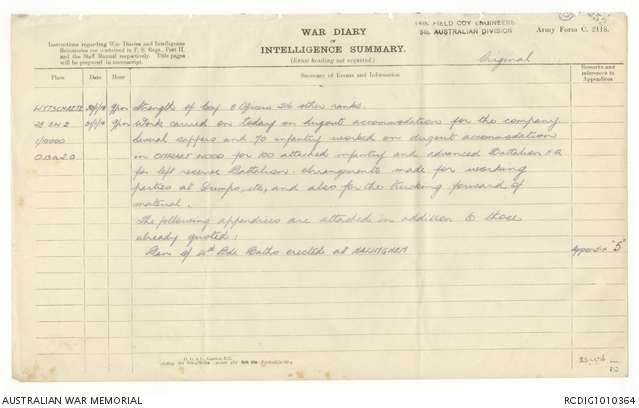 14th FIELD COY ENGINEERS
5th AUSTRALIAN DIVISION
WAR DIARY
OF
INTELLIGENCE SUMMARY.
(Erase heading not required.)
Army Form C. 2118.
Original
Instructions regarding War Diaries and Intelligence
Summaries are contained in F. S. Regs., Part II.
and the Staff Manual respectively. Title pages
will be prepared in manuscript.
Place Date Hour Summary of Events and Information Remarks and references to Appendices
WYTSCHAETE Strength of Coy 8 Officers other ranks.
28 SW 2 Work carried on today on dugout accommodation for the company
1/10000 sappers and 70 infantry worked on dugout accommodation
in WOOD for 100 attached infantry and advanced Battalion HQ
for left reserve Battalion. Arrangements made for working
parties at Dumps, etc, and also for the trucking forward of
material.
The following appendices are attached in addition to those
already quoted:
Plan of Bde Baths erected at Appendix "5"
AUSTRALIAN WAR MEMORIAL
RCDIG1010364